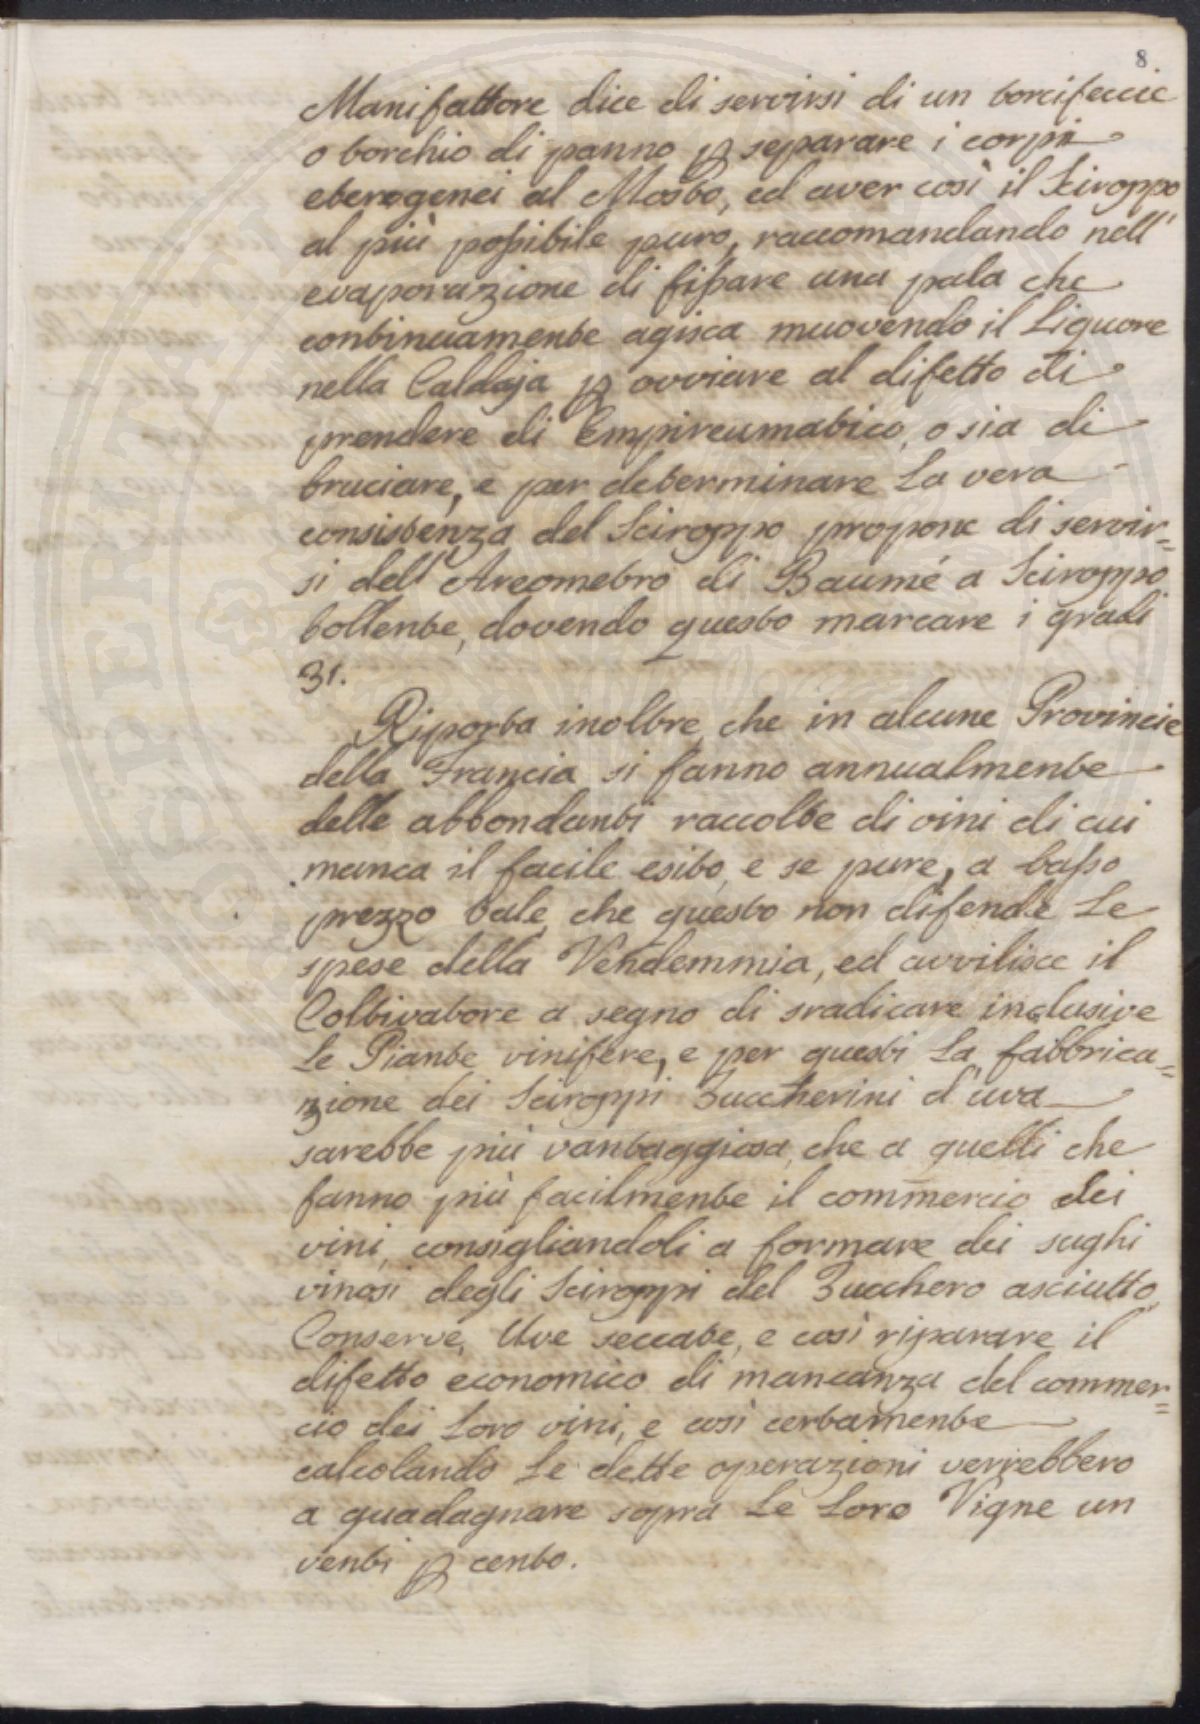 8
Manifattore dice di servirsi di un torcifeccie
o torchio di panno p separare i corpi
eterogenei al Mosto, ed aver così il Sciroppo
al più possibile puro, raccomandando nell'
evaporazione di fissare una pala che
continuamente agisca muovendo il Liquore
nella Caldaja p ovviare al difetto di
prendere di Empireumatico, o sia di
bruciare, e per determinare La vera
consistenza del Sciroppo propone di servir=
si dell'Areometro di Baumé a Sciroppo
bollente, dovendo questo marcare i gradi
31.
Riporta inoltre, che in alcune Provincie
della Francia si fanno annualmente
delle abbondanti raccolte di vini di cui
manca il facile esito, e se pure, a basso
prezzo tale, che questo non difende Le
spese della Vendemmia, ed avvilisce il
Coltivatore a segno di sradicare inclusive
Le Piante vinifere, e per questi La fabbrica=
zione dei Sciroppi Zuccherini d'uva
sarebbe più vantaggiosa, che a quelli che
fanno più facilmente il commercio dei
vini, consigliandoli a formare dei sughi
vinosi degli Sciroppi del Zucchero asciutto,
Conserve, Uve seccate, e così riparare il
difetto economico di mancanza del commer=
cio dei Loro vini, e così certamente
calcolando Le dette operazioni verrebbero
a guadagnare sopra Le Loro Vigne un
venti p cento.